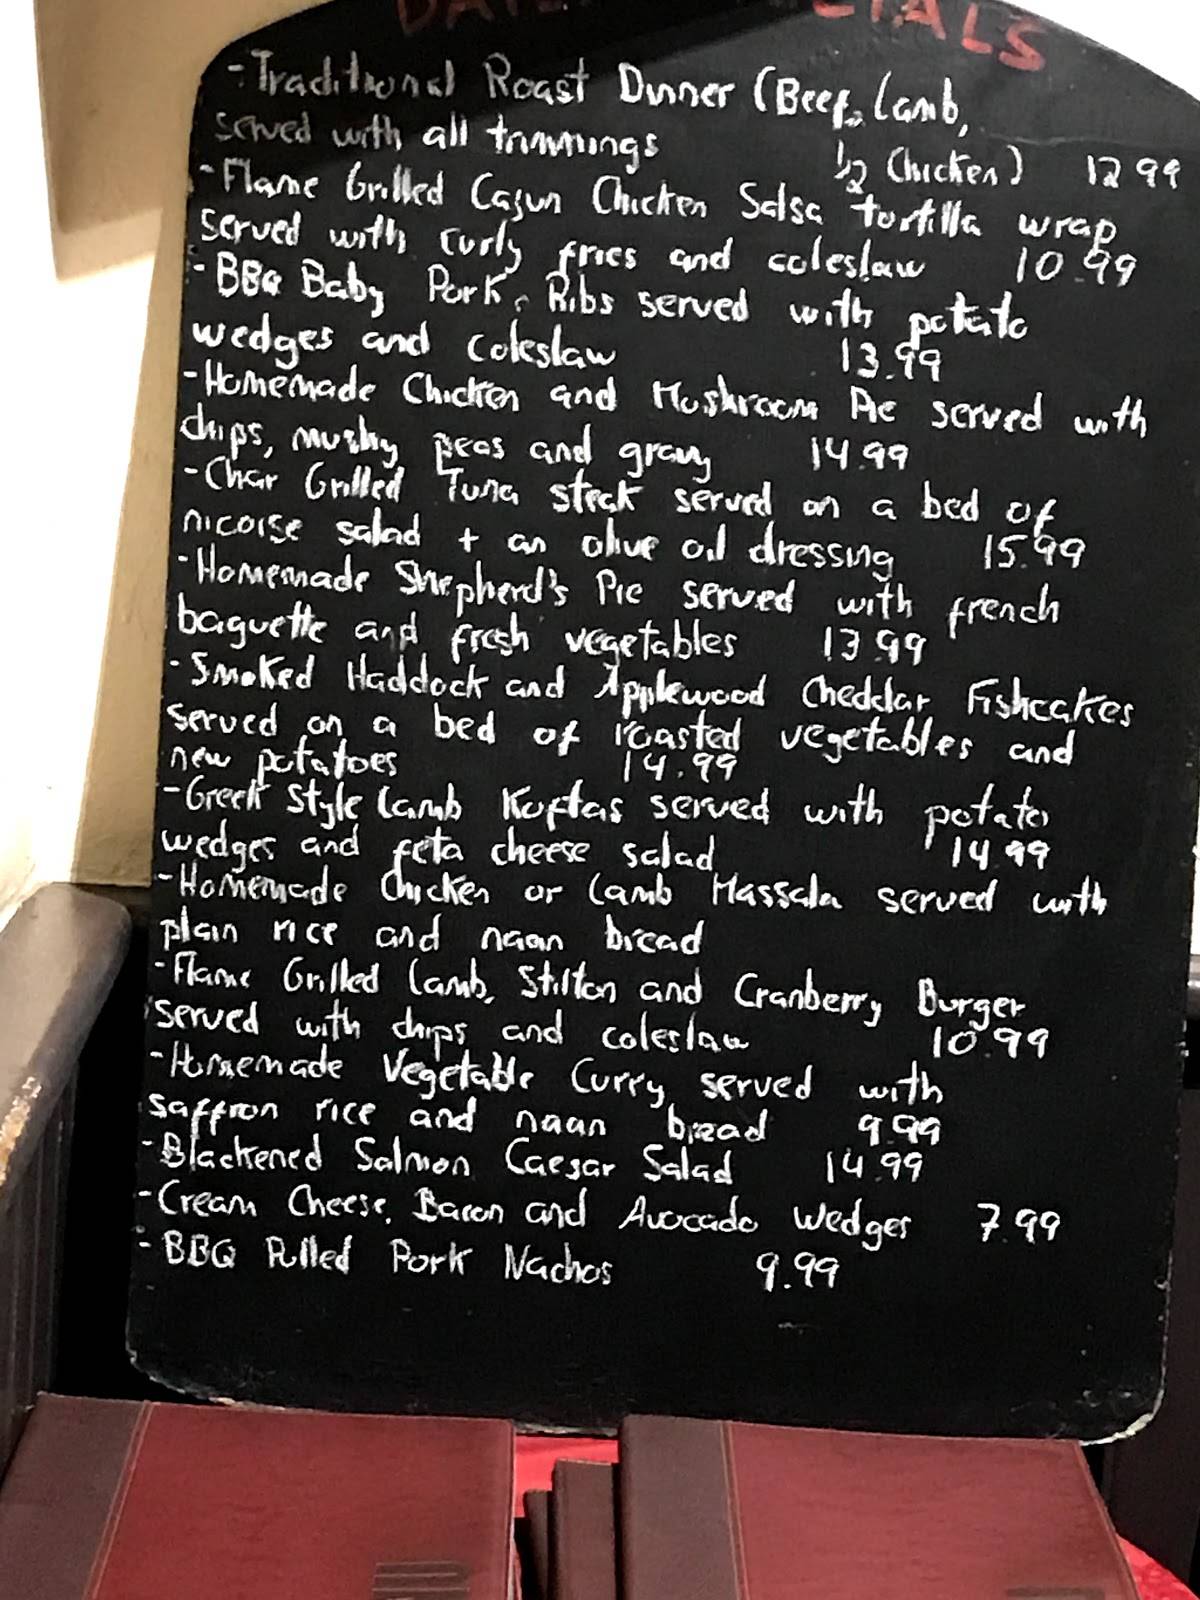 - Traditional Roast Dinner (Beef, Lamb,
served with all trimmings 1/2 Chicken) 12 99
- Flame Grilled Cajun Chicken Salsa tortilla wrap
served with curly fries and coleslaw 10.99
- BBQ Baby Pork Ribs served with potato
wedges and coleslaw 13.99
- Homemade Chicken and Mushroom Pie served with
chips, mushy peas and gravy 14.99
- Char Grilled Tuna steak served on a bed of
nicoise salad + an olive oil dressing 15.99
- Homemade Shepherd's Pie served with french
baguette and fresh vegetables 13.99
- Smoked Haddock and Applewood Cheddar Fishcakes
served on a bed of roasted vegetables and
new potatoes 14.99
- Greek Style Lamb Koftas served with potato
wedges and feta cheese salad 14.99
- Homemade Chicken or Lamb Massala served with
plain rice and naan bread
- Flame Grilled Lamb, Stilton and Cranberry Burger
served with chips and coleslaw 10.99
- Homemade Vegetable Curry served with
saffron rice and naan bread 9.99
- Blackened Salmon Caesar Salad 14.99
- Cream Cheese, Bacon and Avocado Wedges 7.99
- BBQ Pulled Pork Nachos 9.99